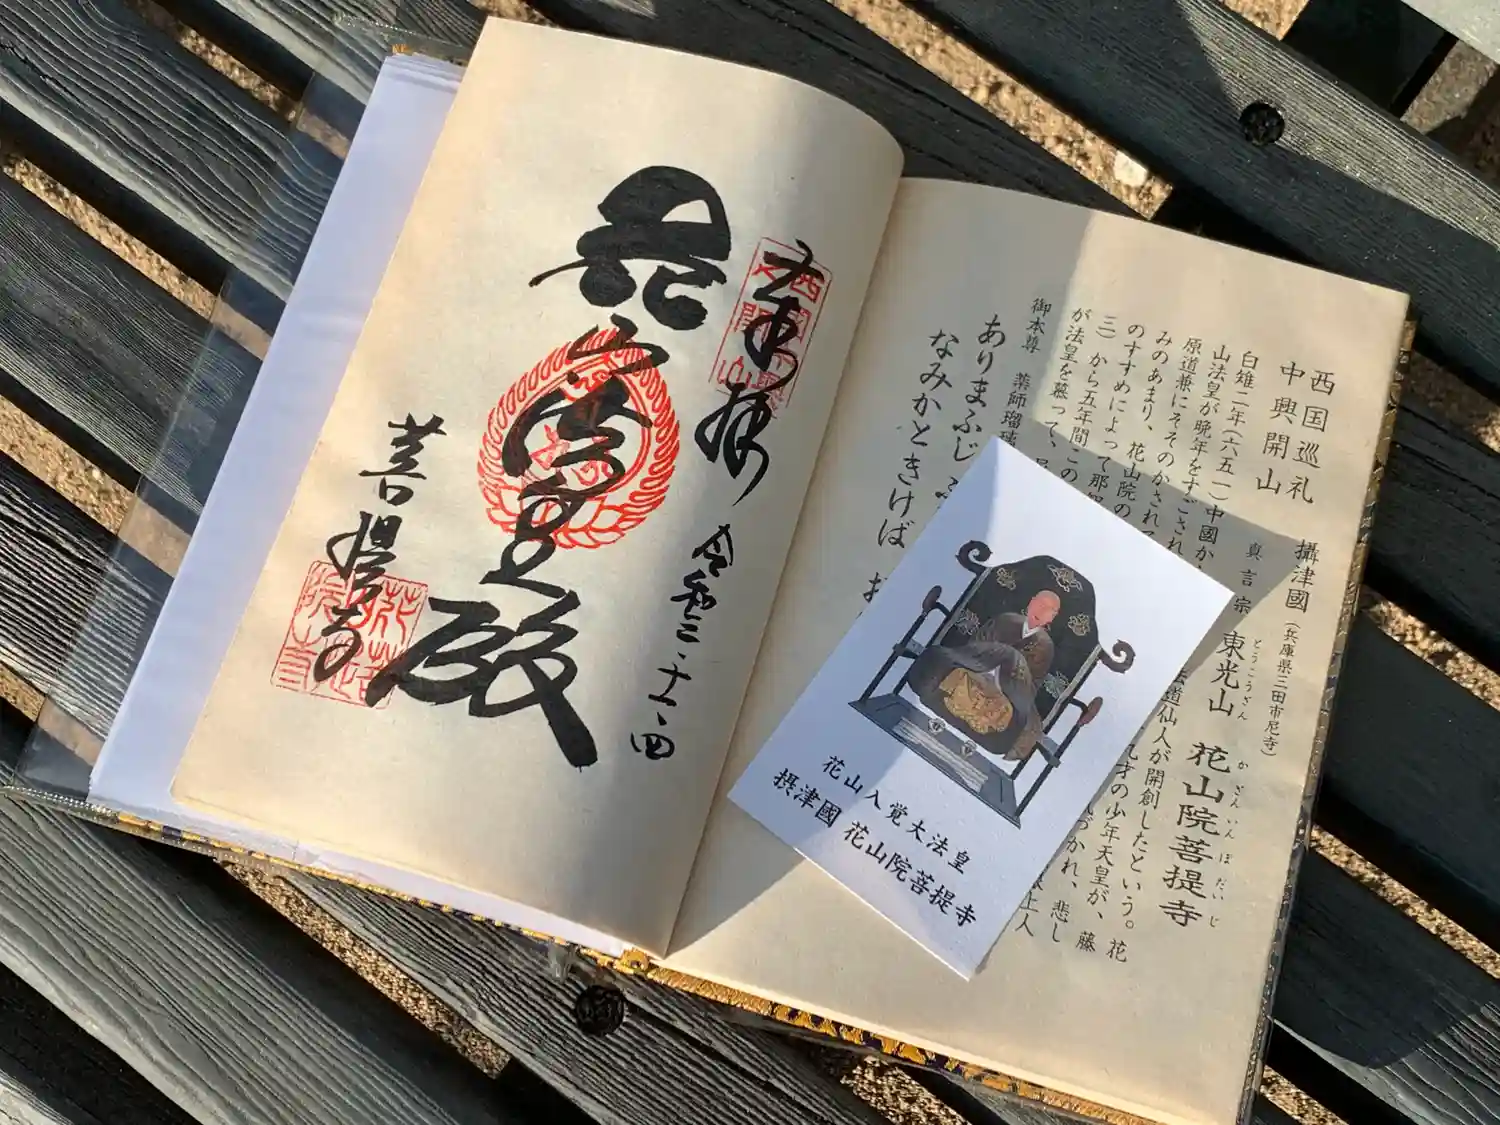 西国巡礼
中興開山
攝津國(兵庫県三田市尼寺)
真言宗 東光山 花山院菩提寺
とうこうざん かざんいんぼだいじ
白雉二年(六五一)中國か
法道仙人が開創したという。花
山法皇が晩年をすごされ
九才の少年天皇が、藤
原道兼にそそのかされて
づかれ、悲し
みのあまり、花山院の
上人
のすすめによって那
三)から五年間この
が法皇を慕って、
御本尊 薬師瑠璃
ありまふじ
なみかときけば
奉拝
令和三・十一・四
花山法皇殿
菩提寺
花山院菩提寺
花山入覚大法皇
摂津國 花山院菩提寺